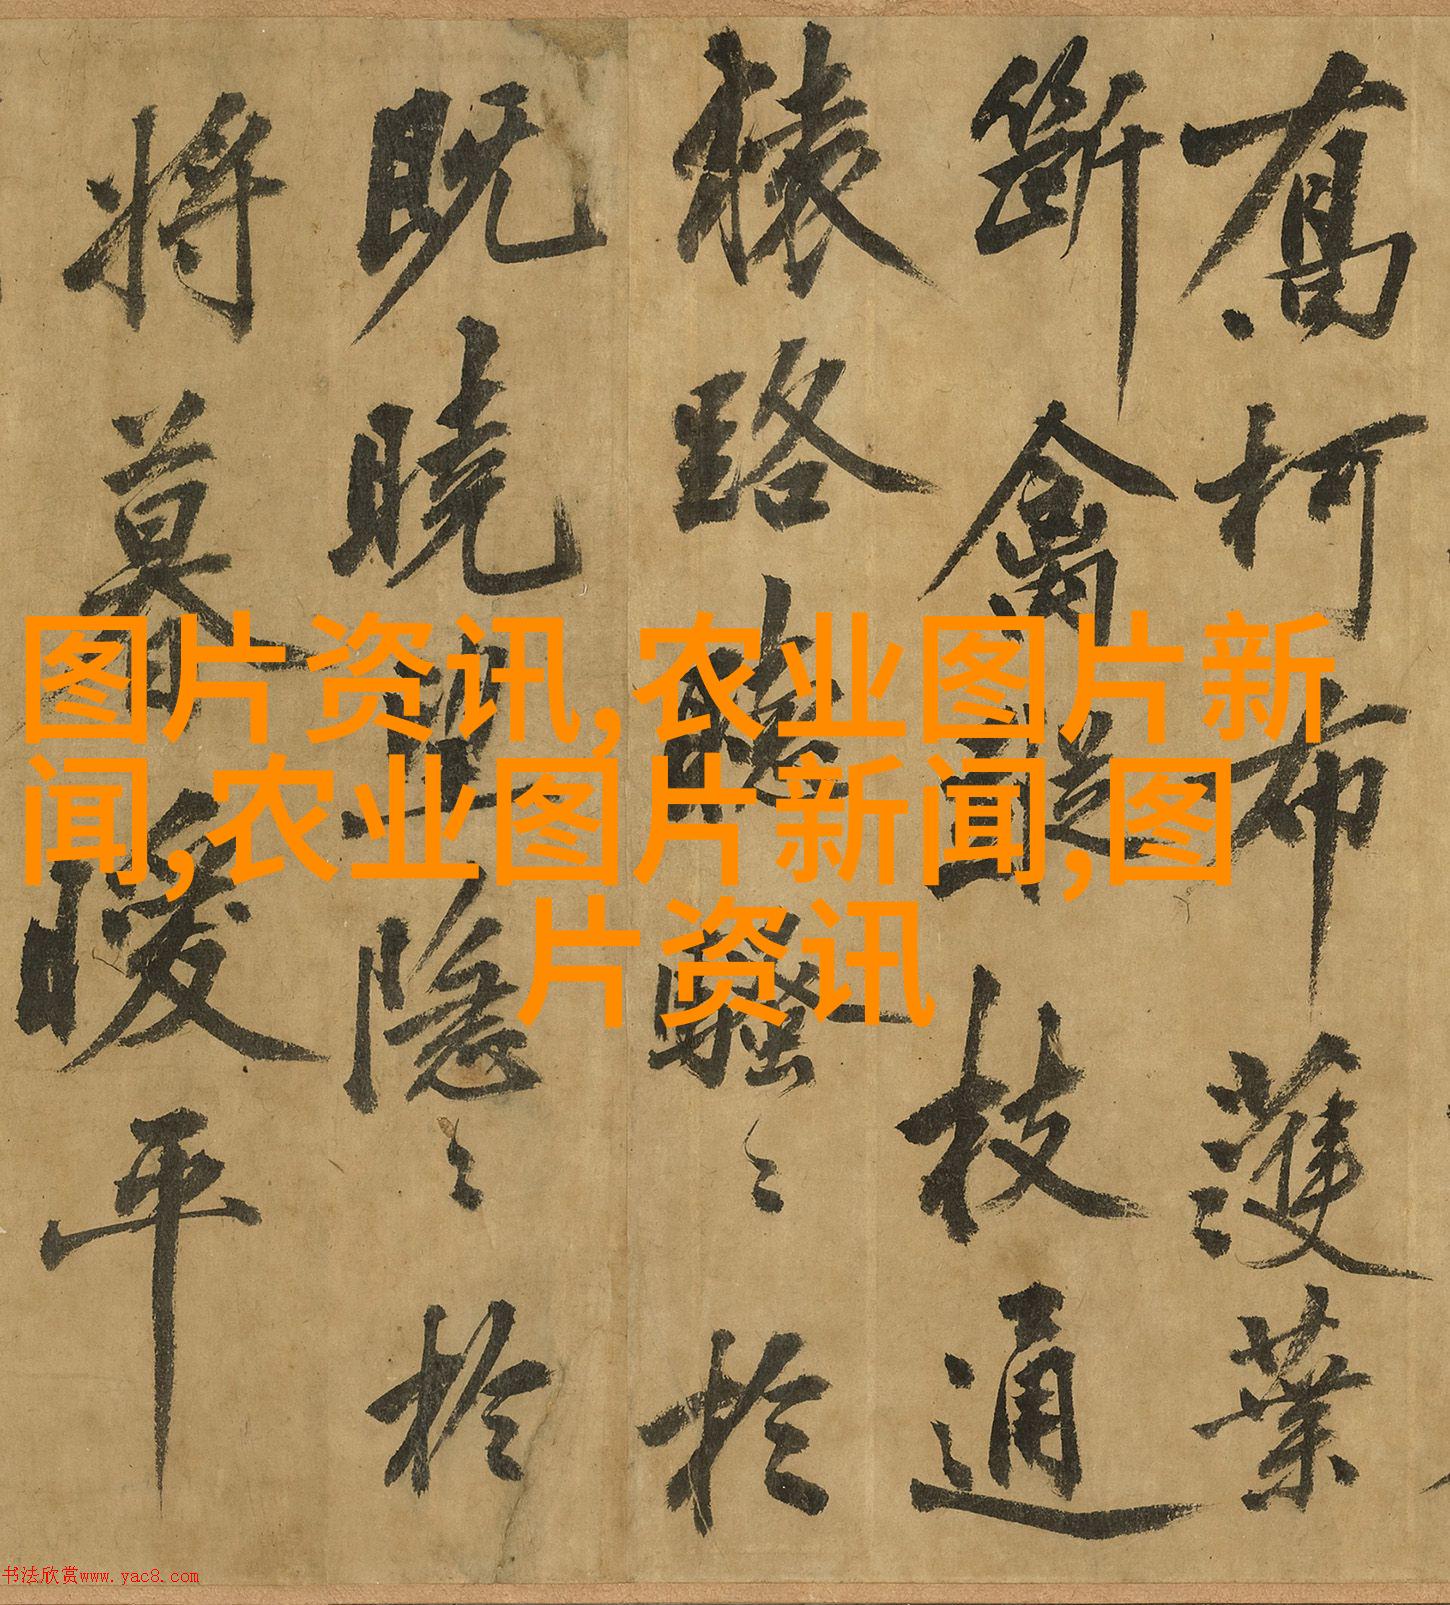 喬柯布濩葉
斷禽蹤枝通
猿路聽騷〻於
既曉望隱〻於
將暮暖平
图片资讯,农业图片新
闻,农业图片新闻,图
片资讯
书法欣赏www.yac8.com